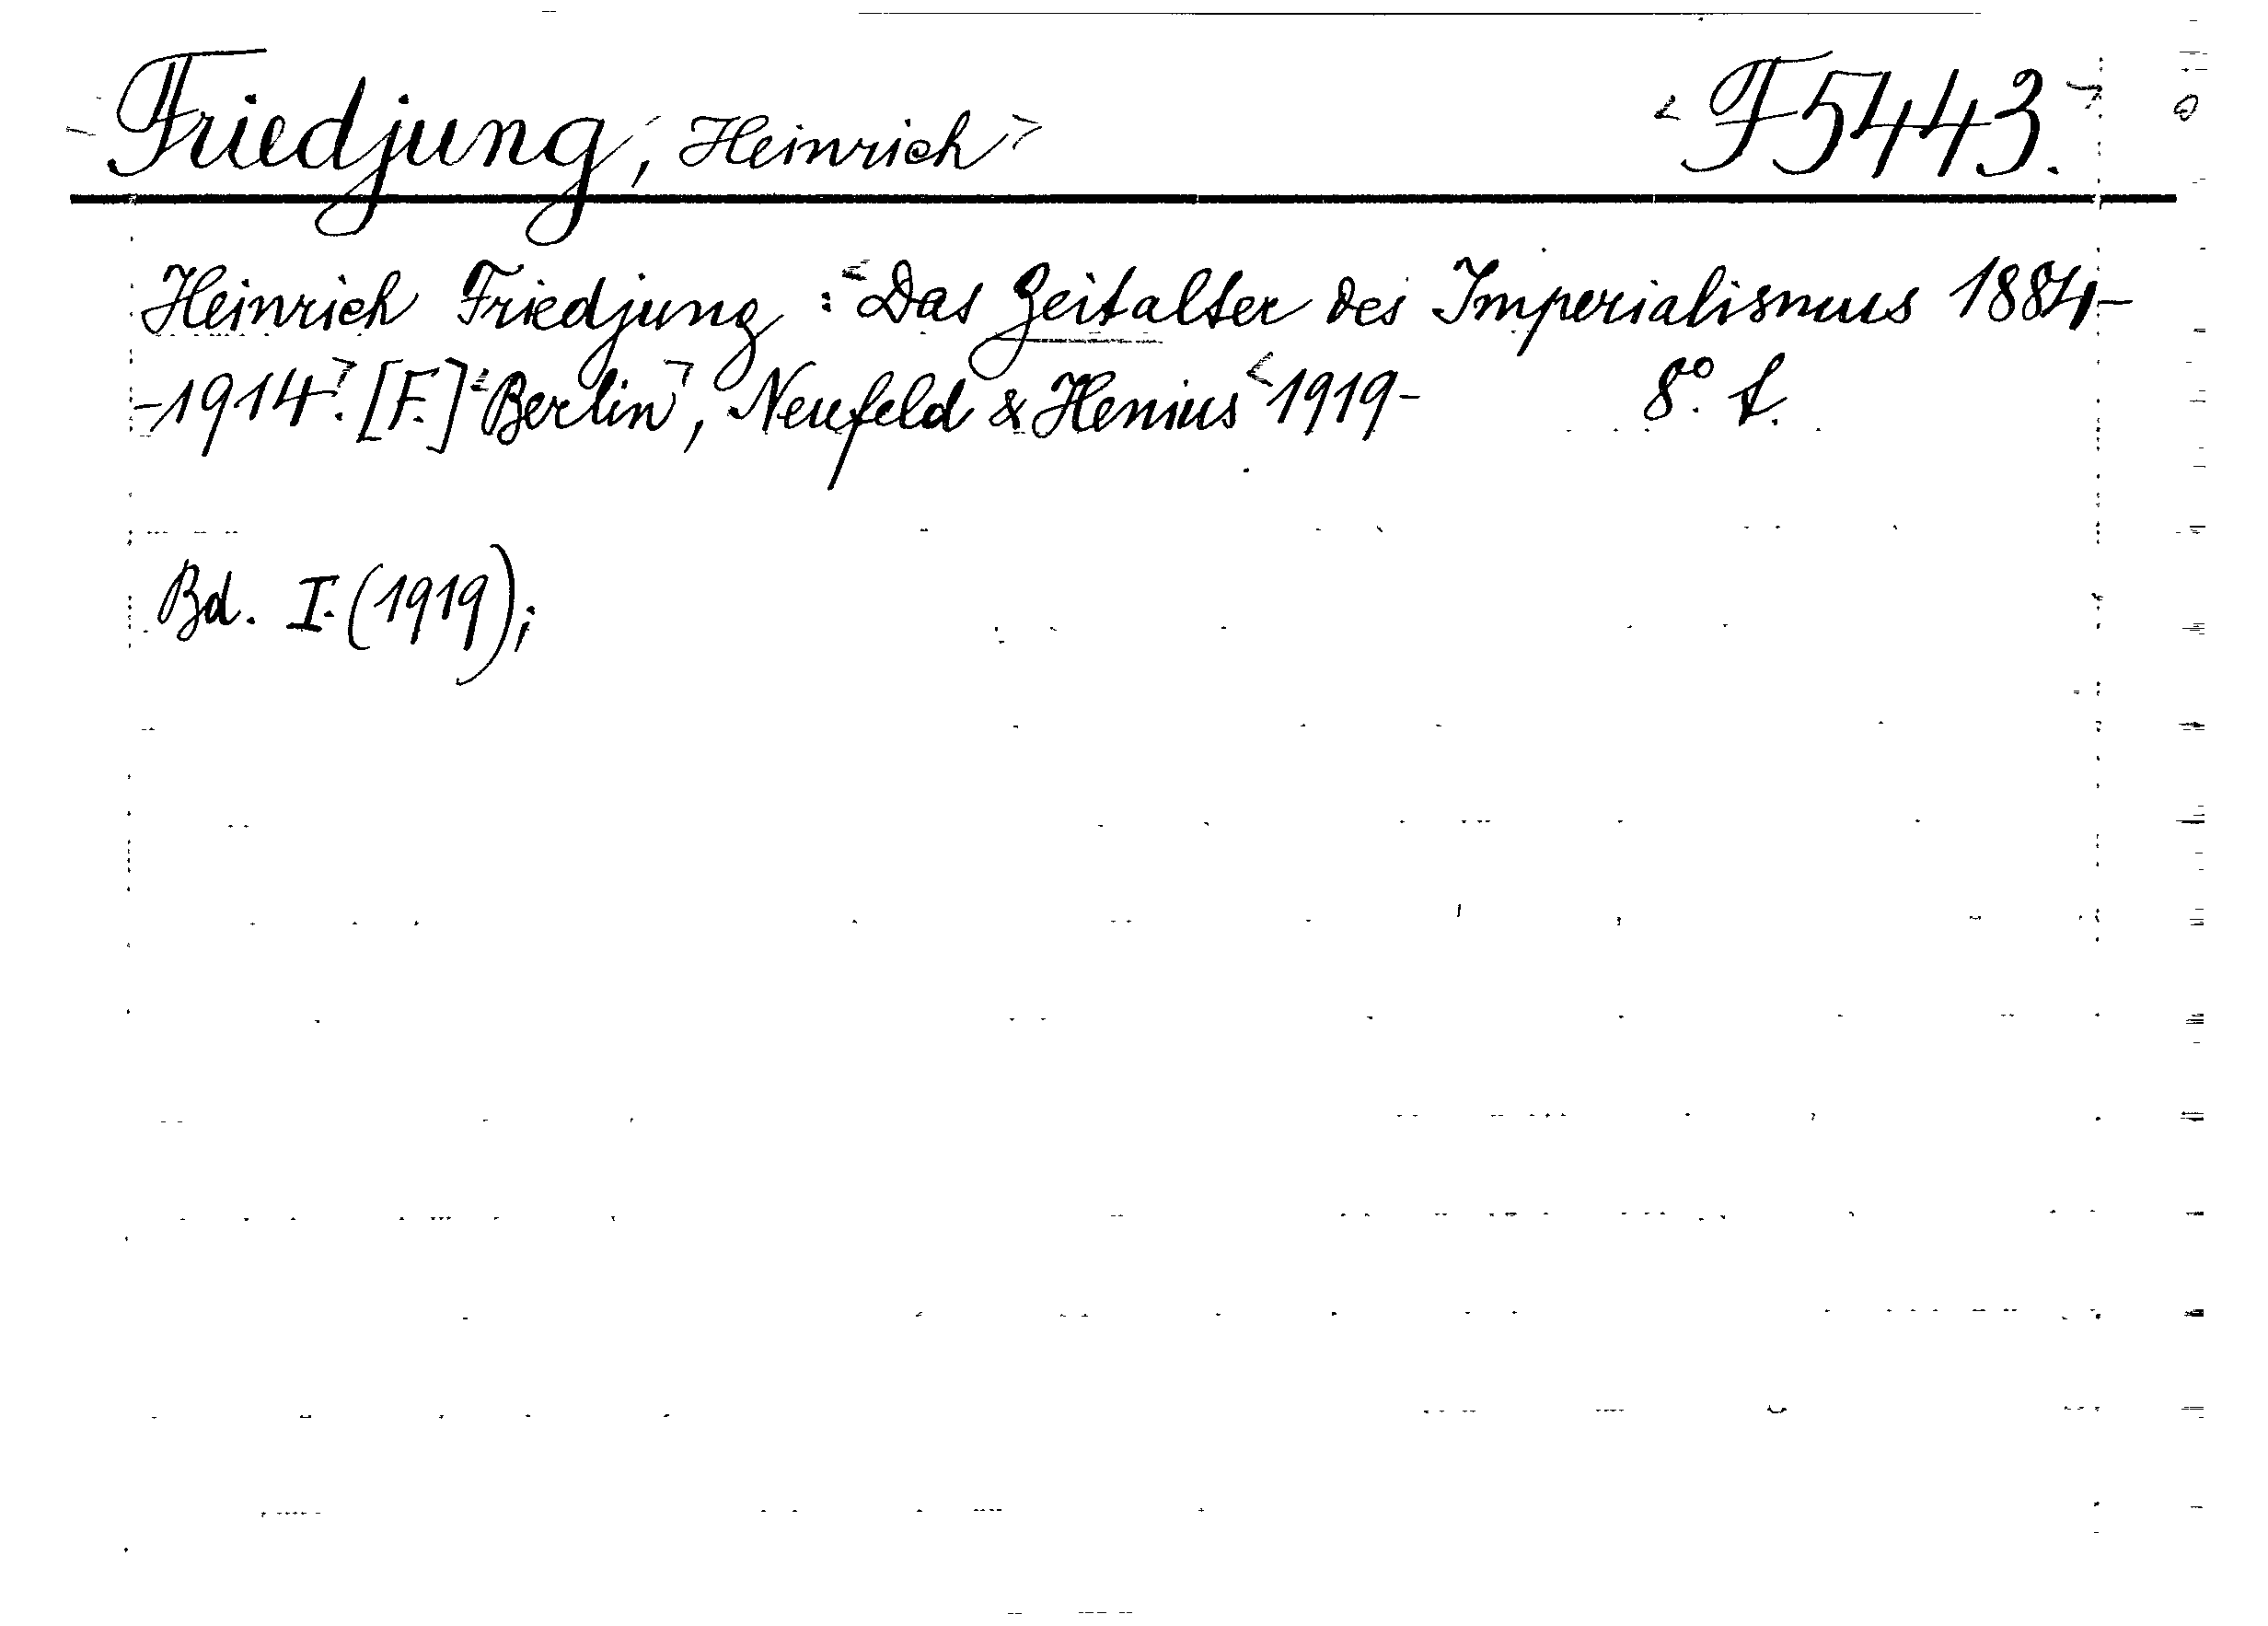 Friedjung, Heinrich F5443.
Heinrich Friedjung: Das Zeitalter des Imperialismus 1884-
-1914. [F.] Berlin, Neufeld & Henius 1919- 8°.
Bd. I. (1919);